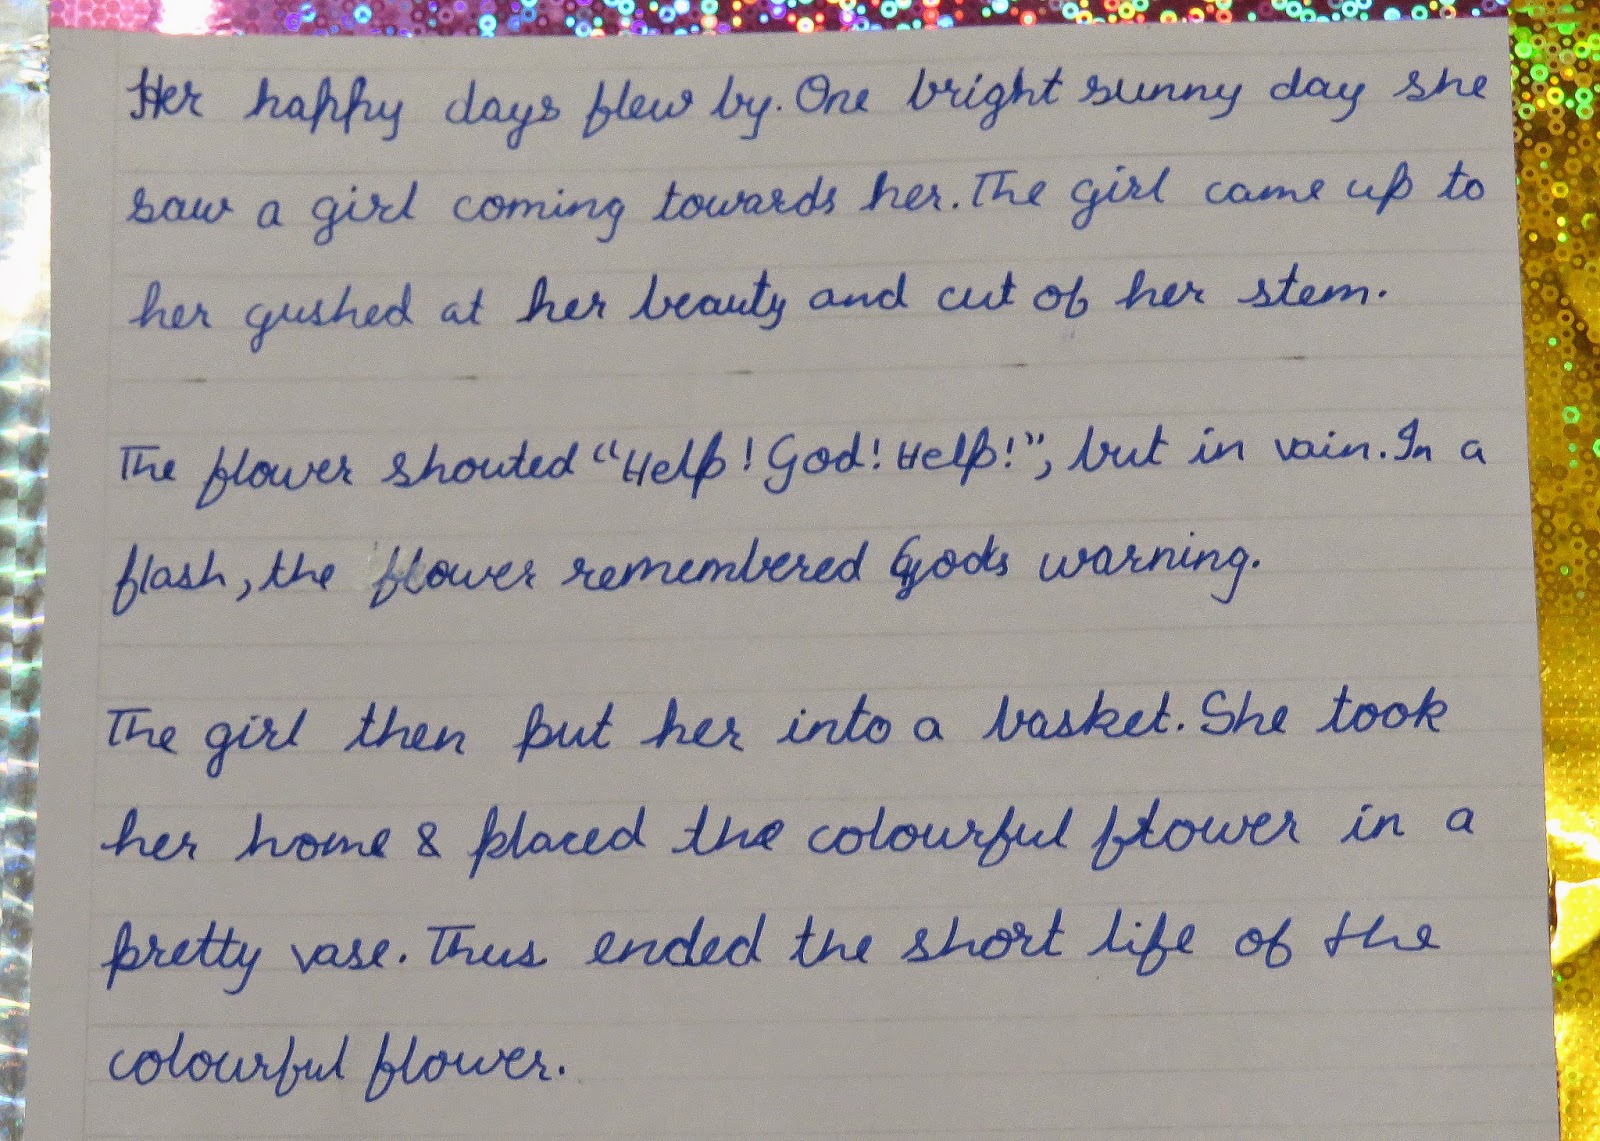 Her happy days flew by. One bright sunny day she
saw a girl coming towards her. The girl came up to
her gushed at her beauty and cut of her stem.
The flower shouted "Help! God! Help!", but in vain. In a
flash, the flower remembered Gods warning.
The girl then put her into a basket. She took
her home & placed the colourful flower in a
pretty vase. Thus ended the short life of the
colourful flower.